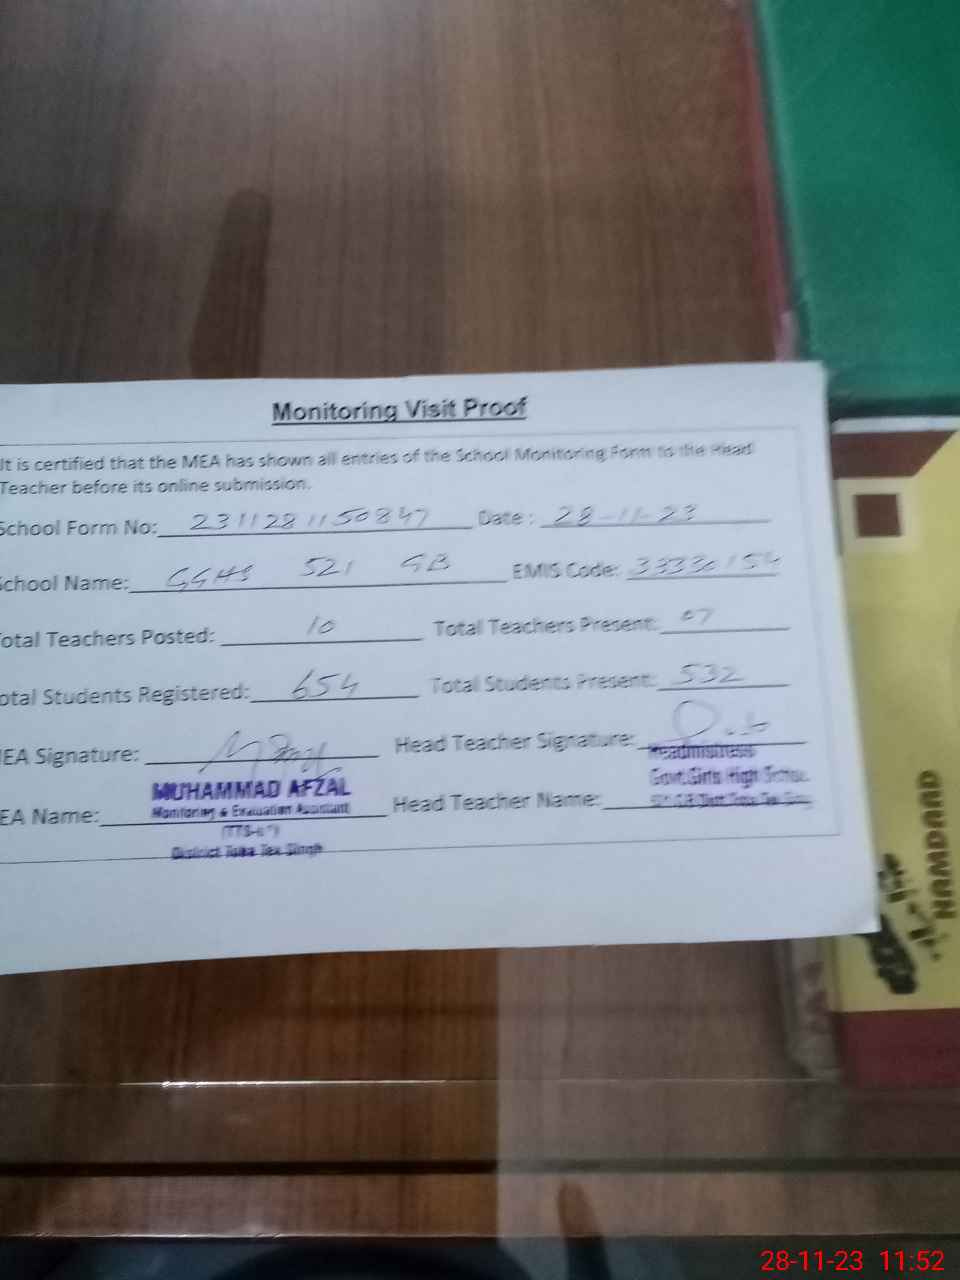 Monitoring Visit Proof
It is certified that the MEA has shown all entries of the School Monitoring Form to the Head
Teacher before its online submission.
School Form No: 2311281150847 Date: 28-11-23
School Name: GGHS 521 GB EMIS Code: 33330154
Total Teachers Posted: 10 Total Teachers Present: 07
Total Students Registered: 654 Total Students Present: 532
MEA Signature: Head Teacher Signature:
Headmistress
MUHAMMAD AFZAL Govt.Girls High School
MEA Name: Monitoring & Evaluation Assistant Head Teacher Name:
District Toba Tek Singh
NAMDAAD
28-11-23 11:52